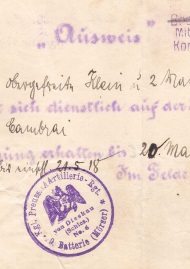 „Ausweis"
Mit
Kom
obergefreiter Klein u 2 Man
sich dienstlich auf der
Cambrai
ung erhalten bis 20. Ma
20.5.18
Im Felde
Kgl. Preuss. Artillerie-Rgt.
von Dieskau
(Schles.)
No. 6
9. Batterie (Mörser)